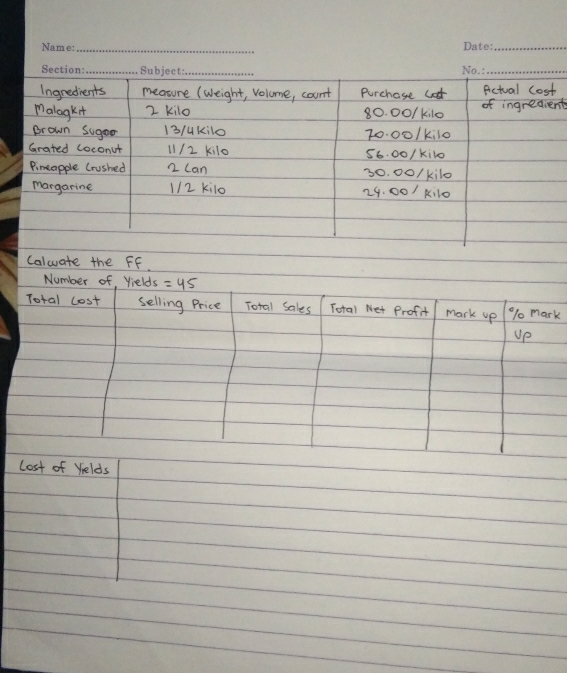 Name:
Date:
Section: Subject:
No.:
Ingredients Measure (Weight, Volume, count Purchase Cost Actual Cost of ingredients
Malagkit 2 kilo 80.00/kilo
Brown Sugar 13/4 kilo 70.00/kilo
Grated Coconut 11/2 kilo 56.00/kilo
Pineapple Crushed 2 Can 30.00/kilo
Margarine 1/2 kilo 24.00/kilo
Calcuate the FF.
Number of Yields = 45
Total Cost Selling Price Total Sales Total Net Profit Mark up % Mark up
Cost of Yields